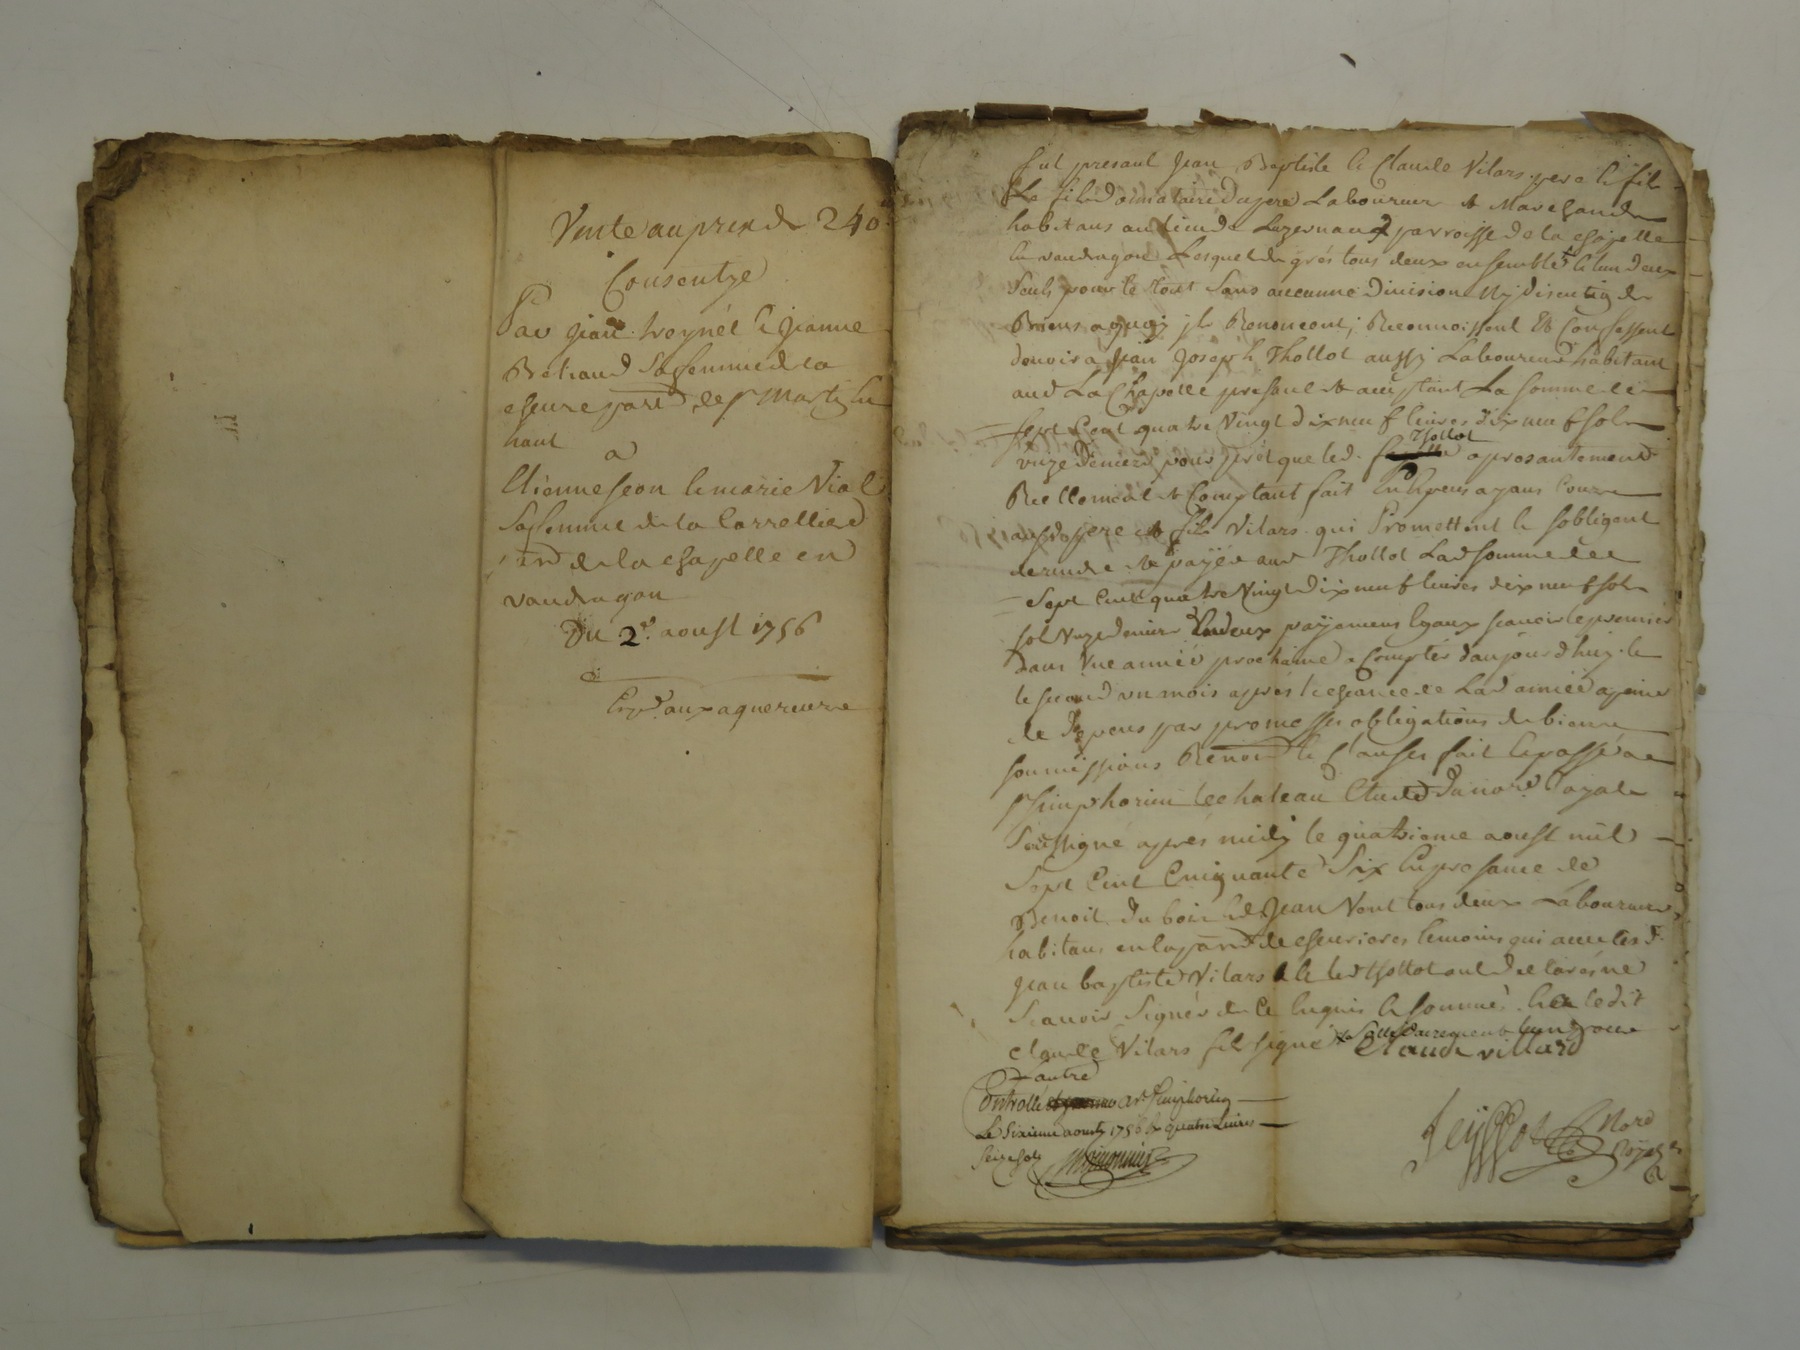 Vente au prix de 240ᵗᵗ
Consentye
Par Jean Poynet & Jeanne
Betrand sa femme de la
parr de sᵗ Martin le
haut
a
Etienne Jeon & marie Vial
sa femme de la
parr de la chapelle en
vaudragon
Du 2ᵉ aoust 1756
Expᵉ aux aquereurs
fut presant Jean Baptiste & Claude Vilars pere & fils
Le fils donnataire du pere Laboureur & Marchands
habitans au lieu de Luzernaud parroisse de la chapelle
en vaudragon Lesquels de grés tous deux ensemble & l'un deux
seuls pour le tout sans aucunne Division Ny discution de
Biens a quoy ils Renoncent, Reconnoissent & Confessent
devoir a Jean Joseph Thollot aussy Laboureur habitant
aud La Chapelle presant & acceptant La somme de
sept Cent quatre Vingt dix neuf livres dix neuf sols
unze deniers pour prêt que led. Thollot a presantement
Reellement & Comptant fait En Espens ayans Cours
ausd pere & fils Vilars qui Promettent & sobligent
de rendre & payér aud Thollot Lad somme de
sept Cent quatre Vingt dix neuf livres dix neuf sols
sol Unze denier En deux payemens Egaux scavoir le premier
dans Une année prochaine a Compter daujourdhuy &
le second un mois aprés lecheance de Lad année a peine
de Depens par promesses obligations de biens
soumissions Renond & Clauses fait & passé a
sᵗ simphorien le chateau Etude du norᵉ Royal
soussigné aprés midy le quatrieme aoust mil
sept Cent Cinquante Six En presance de
Benoit du bois & de Jean Vont tous deux Laboureurs
habitans en la parr de chevrieres temoins qui avec lesd.
Jean baptiste Vilars & led thollot ont declarés ne
scavoir signér de Ce Enquis & sommés & a ledit
Claude Vilars fils signé solidairement lun pour
lautre
Claude villard
Controllé a sᵗ Simphorien
Le Sixieme aoust 1756 quatre Livres
seize sols
Norᵉ
Royal